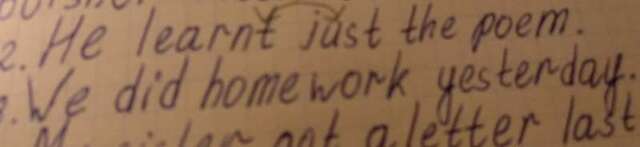 2. He learnt just the poem.
We did homework yesterday.
got a letter last